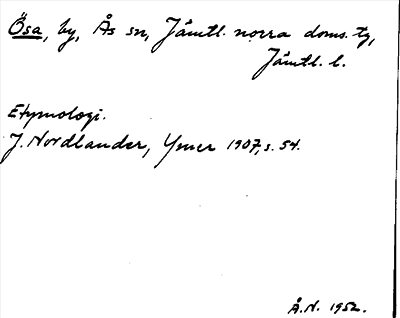 Ösa, by, Ås sn, Jämtl. norra doms. tg,
Jämtl. l.
Etymologi.
J. Nordlander, Ymer 1907, s. 54.
Å.N. 1952.